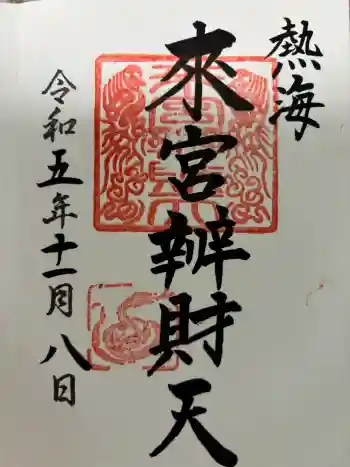 熱海
來宮辨財天
令和五年十一月八日